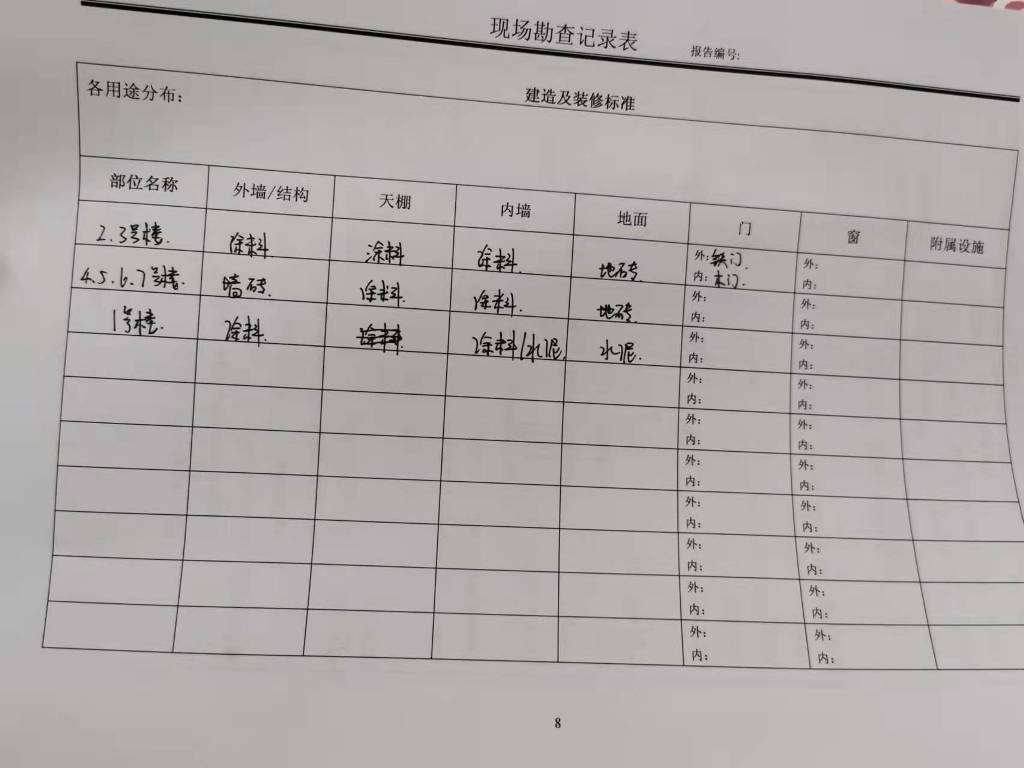 现场勘查记录表
报告编号:
各用途分布:
建造及装修标准
部位名称 外墙/结构 天棚 内墙 地面 门 窗 附属设施
2.3号楼. 涂料 涂料 涂料. 地砖 外:铁门. 外:
内:木门. 内:
4.5.6.7号楼. 墙砖. 涂料. 涂料. 地砖. 外: 外:
内: 内:
1号楼. 涂料. 涂料/水泥. 水泥. 外: 外:
内: 内:
外: 外:
内: 内:
外: 外:
内: 内:
外: 外:
内: 内:
外: 外:
内: 内:
外: 外:
内: 内:
外: 外:
内: 内:
外: 外:
内: 内:
8